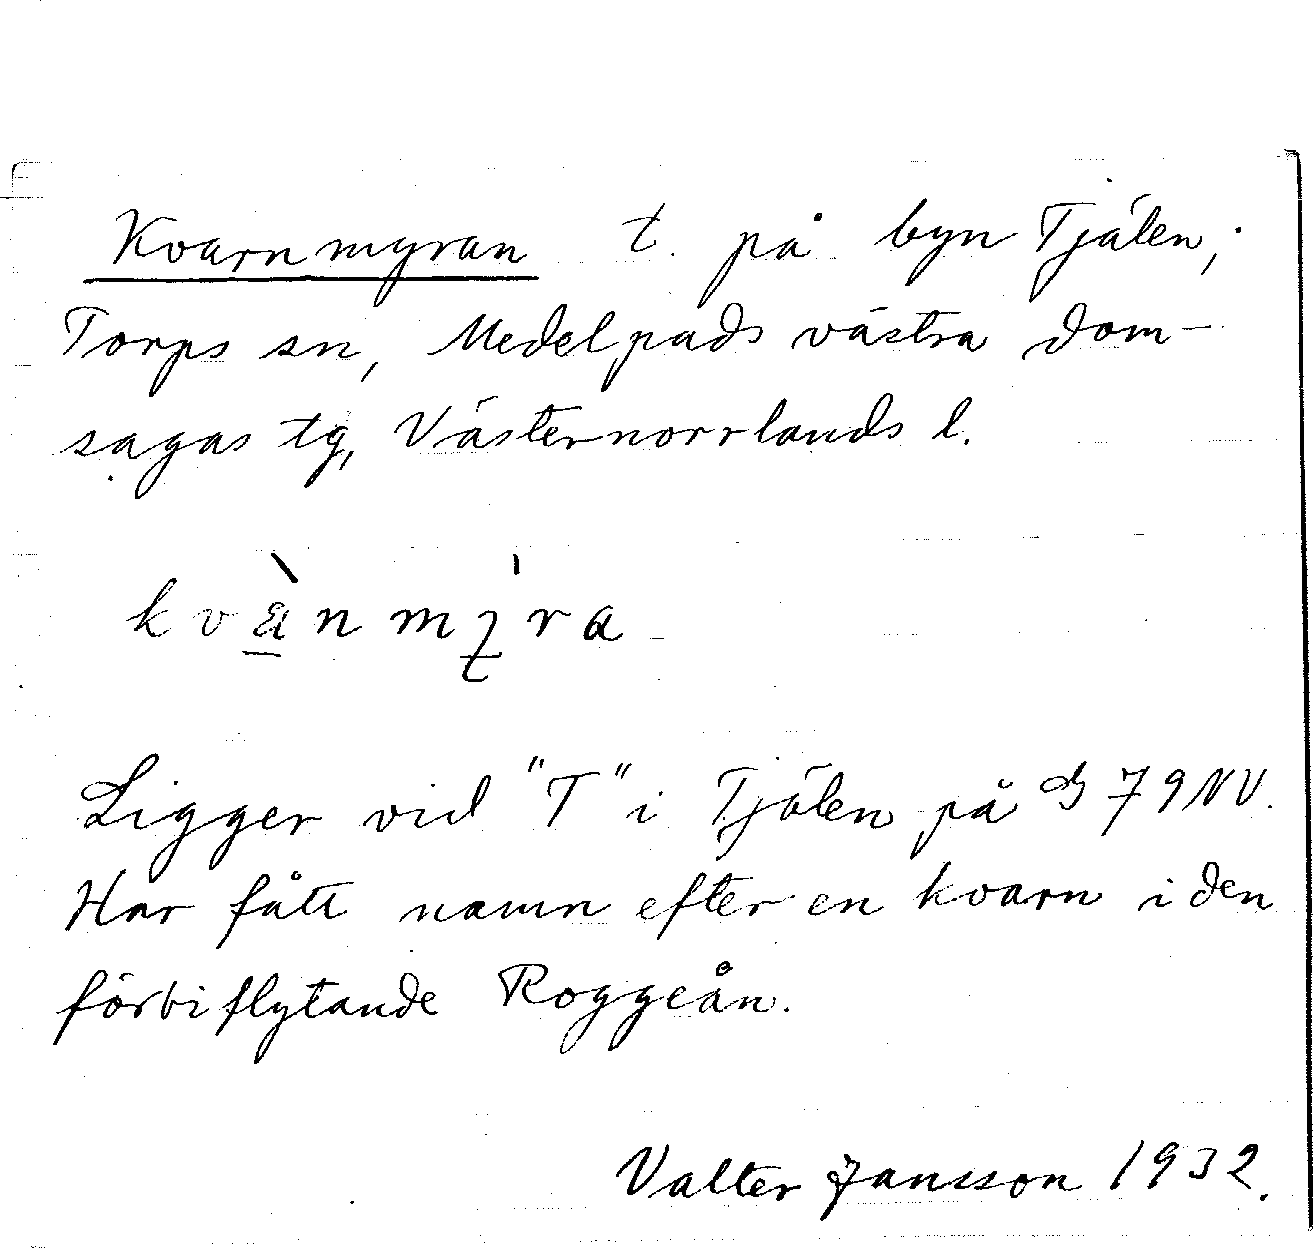 Kvarnmyran t. på byn Tjälen,
Torps sn, Medelpads västra dom-
sagas tg, Västernorrlands l.
Ligger vid "T" i Tjälen på G 79 NV.
Har fått namn efter en kvarn i den
förbiflytande Roggeån.
Valter Jansson 1932.